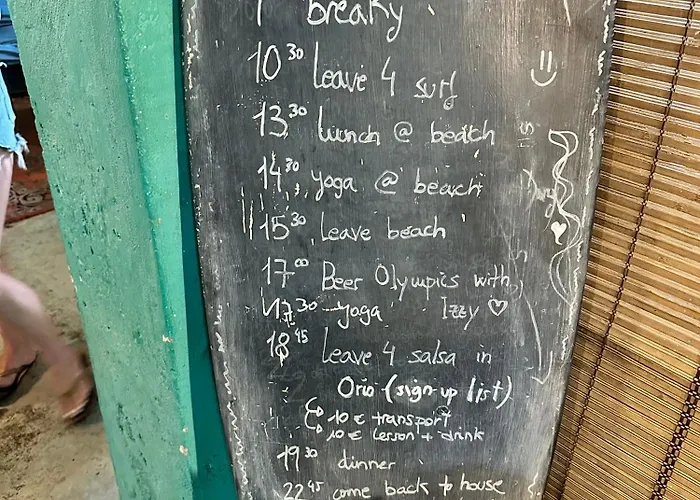 breaky
10³⁰ Leave 4 surf
13³⁰ Lunch @ beach
14³⁰ yoga @ beach
15³⁰ Leave beach
17⁰⁰ Beer Olympics with
Izzy ♡
17³⁰ yoga
18⁴⁵ Leave 4 salsa in
Orio (sign-up list)
10 € transport
10 € lesson + drink
19³⁰ dinner
22⁴⁵ come back to house